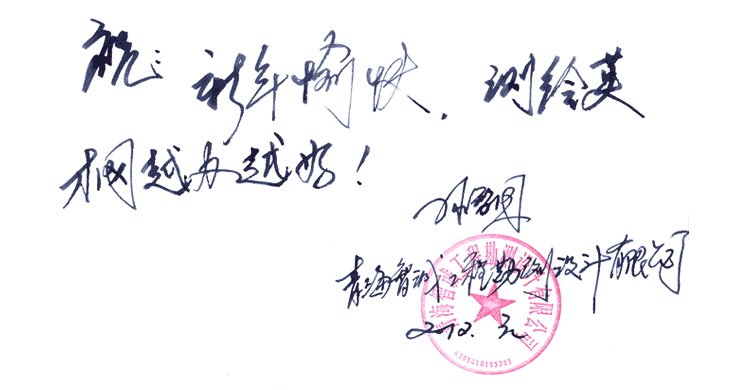 祝:新年愉快,测绘英
才网越办越好!
青海智诚工程勘测设计有限公司
青海智诚工程勘测设计有限公司
6300010105305
2012.元